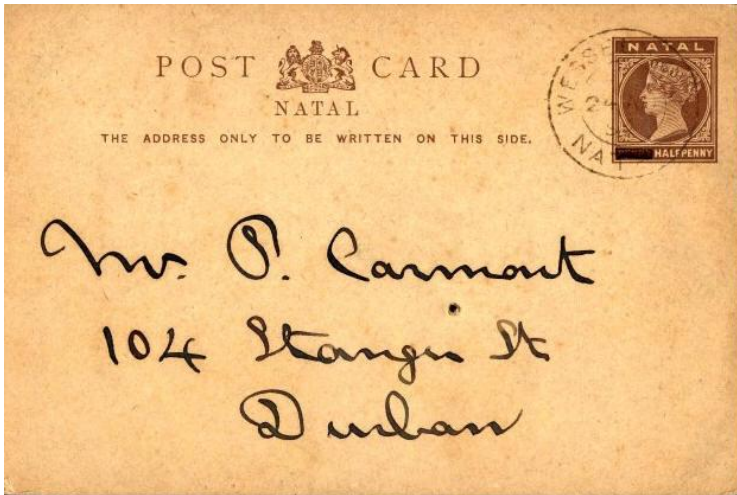 POST CARD
NATAL
THE ADDRESS ONLY TO BE WRITTEN ON THIS SIDE.
NATAL
HALFPENNY
WESS
24
NAT
Mr. P. Carmont
104 Stanger St
Durban